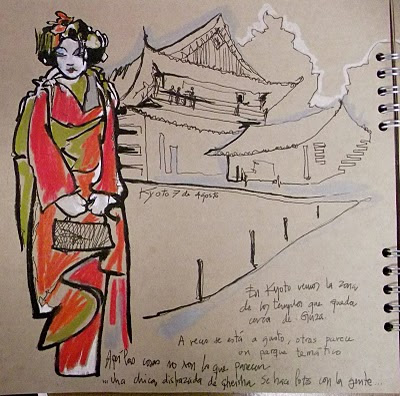 Kyoto 7 de Agosto
En Kyoto vemos la zona
de los templos que queda
cerca de
A veces se está a gusto, otras parece
un parque temático
Aquí las cosas no son lo que parecen
...una chica disfrazada de gheisha se hace fotos con la gente...